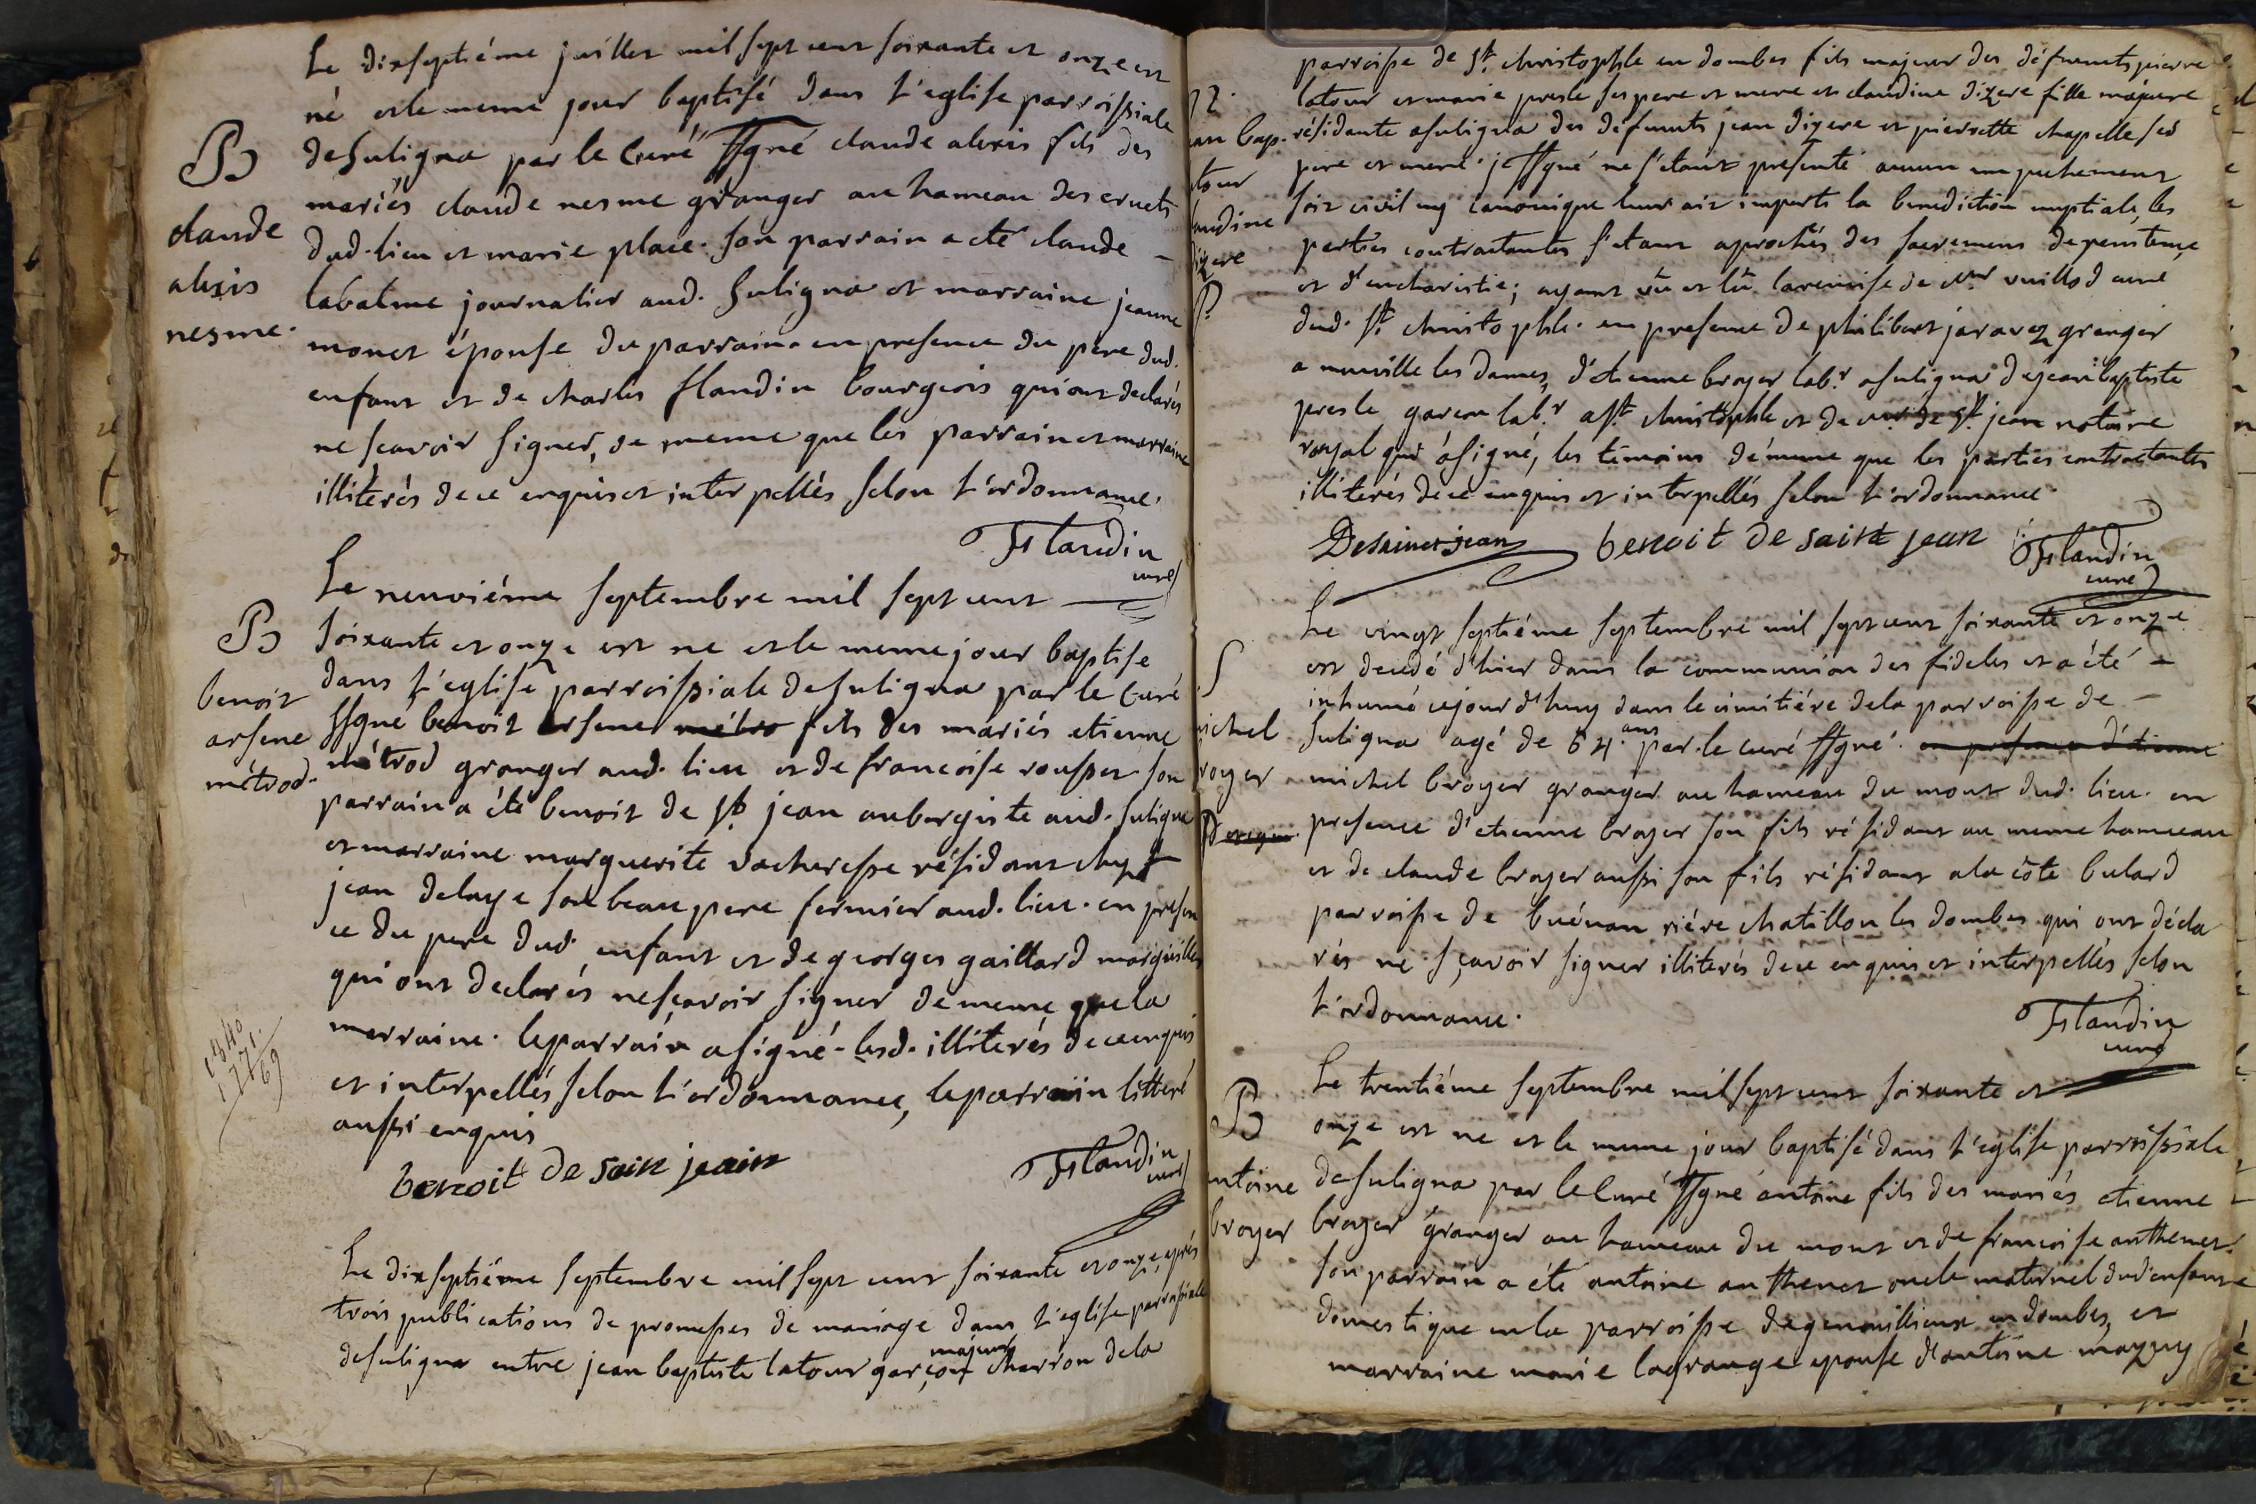 Le dixseptiéme juillet mil sept cent soixante et onze est
né et le meme jour baptisé dans l'eglise parroissiale
B
de suligna par le curé ssgné claude alexis fils des
mariés claude nesme granger au hameau des cruets
claude
dud. lieu et marie place. son parrain a eté claude -
alexis
labalme journalier aud. suligna et marraine jeanne
nesme.
monet épouse du parrain. en presence du pere dud.
enfant et de charles flandin bourgeois qui ont declarés
ne scavoir signer, de meme que les parrain et marraine
illiterés de ce enquis et interpellés selon l'ordonnance.
Flandin
curé
Le neuviéme septembre mil sept cent
B
soixante et onze est ne et le meme jour baptise
dans l'eglise parroissiale de suligna par le curé
benoit
ssgné benoit arsene métro fils des mariés etienne
arsene
métrod granger aud. lieu et de francoise rousset son
métrod.
parrain a été benoit de st jean aubergiste aud. suligna
et marraine marguerite vacheresse résidant chez
jean delaye son beau pere fermier aud. lieu. en presen
ce du pere dud. enfant et de georges gaillard marguillier
qui ont declarés ne scavoir signer de meme que la
marraine. le parrain a signé - lesd. illiterés de ce enquis
1840
1771
69
et interpellés selon l'ordonnance, le parrain litteré
aussi enquis
benoit de sain jean
Flandin
curé
Le dixseptiéme septembre mil sept cent soixante et onze, aprés
trois publications de promesses de mariage dans l'eglise parroissiale
majeur
de suligna entre jean baptiste latour garçon charron de la
parroisse de st. christophle en dombes fils majeur des défunts pierre
latour et marie presle ses pere et mere et claudine dizere fille majeure
an bap.
résidante a suligna des défunts jean dizere et pierrette chapelle ses
tour
pere et mere. je ssgné ne s'etant presenté aucun empechement
audine
soit civil ny canonique leur ait imparti la benediction nuptiale, les
izere
parties contractantes s'etant aprochés des sacremens de penitence
et d'eucharistie; ayant vu et lu la remise de Mr vuillod curé
dud. st. christophle. en presence de philibert jaravez granger
a neuville les dames, d'etienne broyer lab.r a suligna de jean baptiste
presle garcon lab.r a st. christophle et de st. jean notaire
royal qui a signé, les témoins de meme que les parties contractantes
illiterés de ce enquis et interpellés selon l'ordonnance.
Desaint jean benoit de saint jean Flandin
curé
Le vingt septiéme septembre mil sept cent soixante et onze
S
est decedé d'hier dans la communion des fideles et a été -
inhumé cejourd'huy dans le cimitiére de la parroisse de -
ichel
suligna agé de 64 ans par le curé ssgné. en presence d'etienne
royer
michel broyer granger au hameau du mont dud. lieu. en
presence d'etienne broyer son fils résidant au meme hameau
et de claude broyer aussi son fils résidant a la côte bulard
parroisse de buénan riére chatillon les dombes qui ont décla
rés ne sçavoir signer illiterés de ce enquis et interpellés selon
l'ordonnance.
Flandin
curé
Le trentiéme septembre mil sept cent soixante et
B
onze est ne et le meme jour baptisé dans l'eglise parroissiale
ntoine
de suligna par le curé ssgné antoine fils des mariés etienne
broyer
broyer granger au hameau du mont et de francoise anthenet.
son parrain a été antoine anthenet oncle maternel dud enfant
domestique en la parroisse de genouillieux en dombes, et
marraine marie lagrange epouse d'antoine mazuy